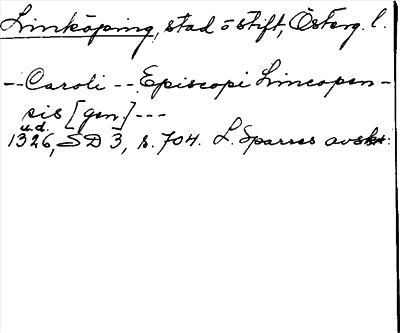 Linköping, stad o stift, Österg. l.
-- Caroli -- Episcopi Lincopen-
sis [gen.] ---
u.d.
1326, SD 3, s. 704. L. Sparres avskr.